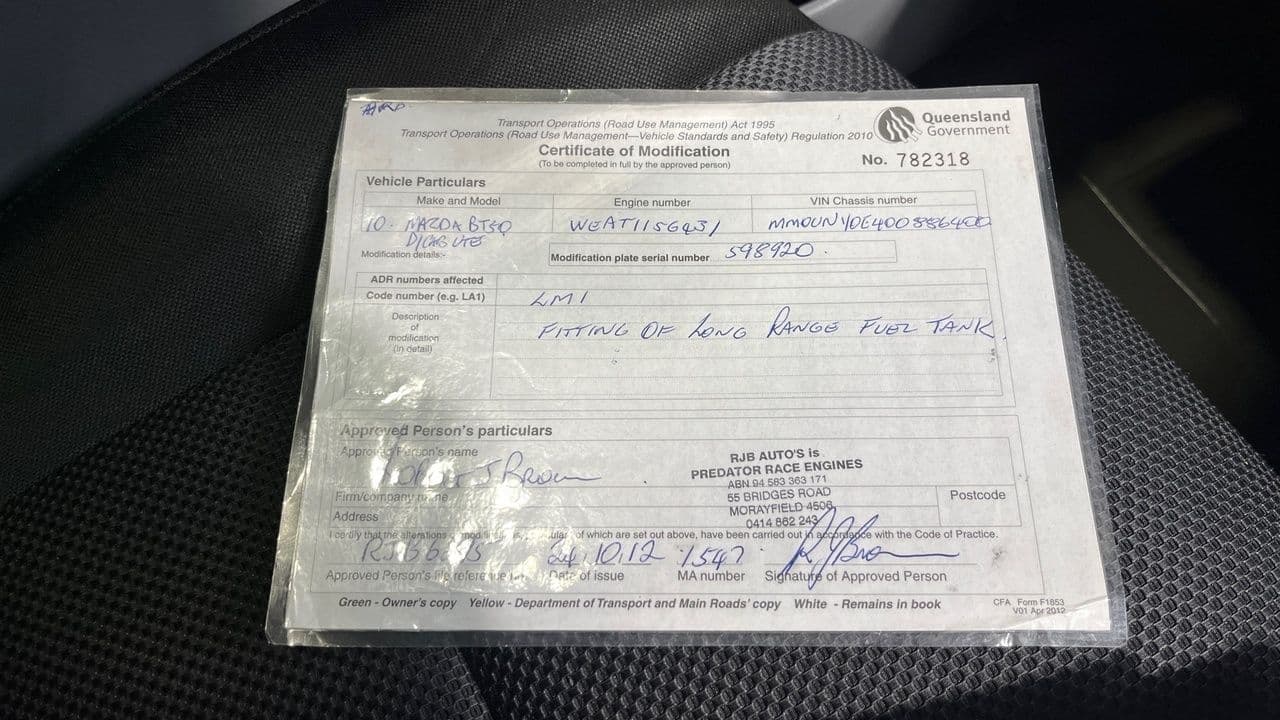 Transport Operations (Road Use Management) Act 1995
Transport Operations (Road Use Management—Vehicle Standards and Safety) Regulation 2010
Queensland
Government
Certificate of Modification
(To be completed in full by the approved person)
No. 782318
Vehicle Particulars
Make and Model Engine number VIN Chassis number
10. MAZDA BT50 WEAT1156931
D/CAB UTE
Modification details:-
Modification plate serial number 598920.
ADR numbers affected
Code number (e.g. LA1) LM1
Description
of
modification
(in detail)
FITTING OF LONG RANGE FUEL TANK.
Approved Person's particulars
Approved Person's name
J BROWN
RJB AUTO'S is
PREDATOR RACE ENGINES
ABN 94 583 363 171
55 BRIDGES ROAD
MORAYFIELD 4506
0414 862 243
Firm/company name
Postcode
Address
I certify that the alterations which are set out above, have been carried out in accordance with the Code of Practice.
24.10.12 1547
Approved Person's file reference Date of issue MA number Signature of Approved Person
Green - Owner's copy Yellow - Department of Transport and Main Roads' copy White - Remains in book
CFA Form F1853
V01 Apr 2012